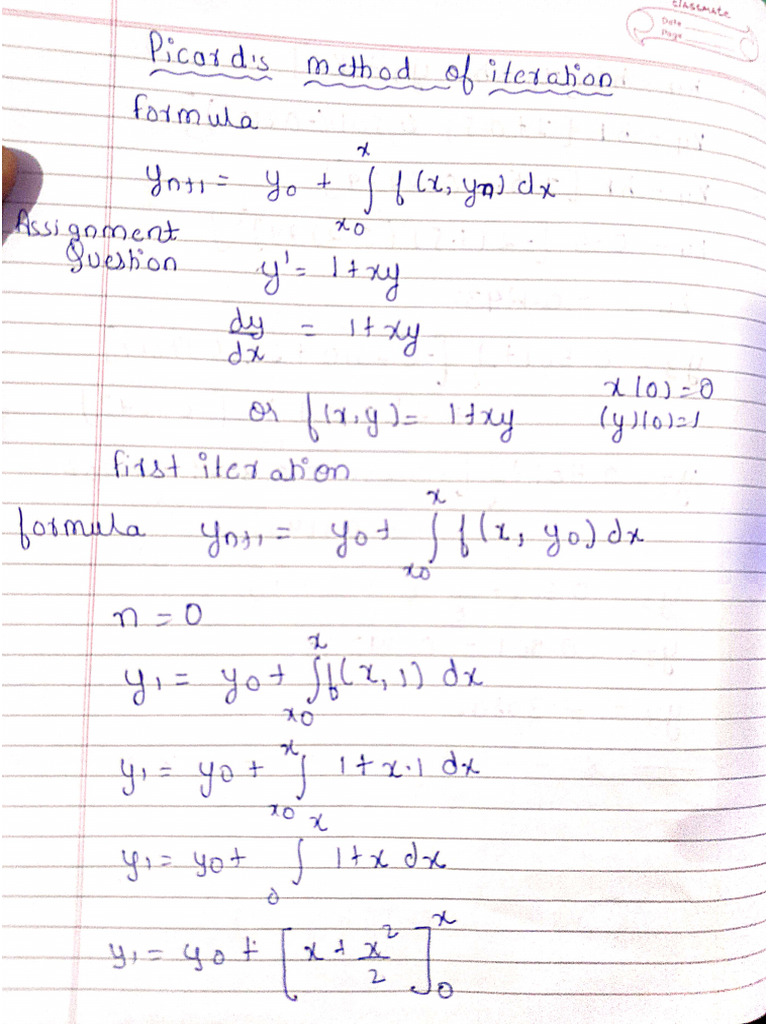 classmate
Date
Page
Picard's method of iteration
formula
yn+1 = y0 + ∫_{x0}^{x} f(x, yn) dx
Assignment
Question y' = 1+xy
dy/dx = 1+xy
or f(x,y) = 1+xy x(0)=0
(y)(0)=1
first iteration
formula yn+1 = y0 + ∫_{x0}^{x} f(x, y0) dx
n = 0
y1 = y0 + ∫_{x0}^{x} f(x, 1) dx
y1 = y0 + ∫_{x0}^{x} 1+x·1 dx
y1 = y0 + ∫_{0}^{x} 1+x dx
y1 = y0 + [x + x²/2]_{0}^{x}